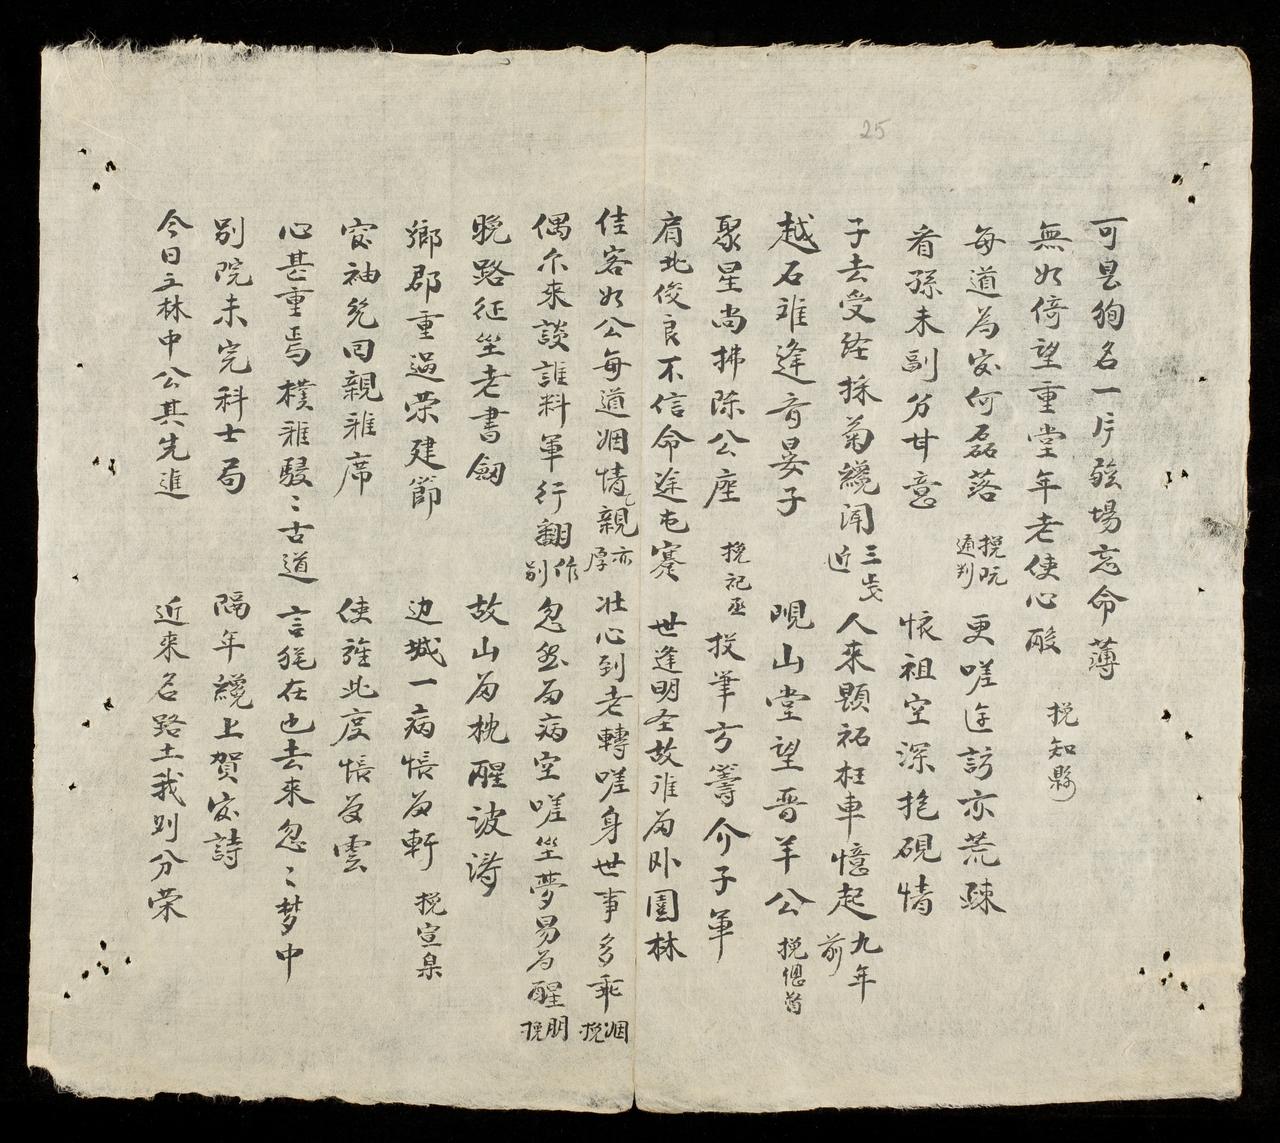 25
可思徇名一片強場忘命薄
無如倚望重堂年老使心酸 挽知縣
每道為家何磊落 挽阮通判 更嗟迂訪亦荒疎
看孫未副分甘意 懷祖空深抱硯情
子去受經採菊纔閒三歲近 人來題祏枉車憶起九年前
越石难逢音晏子 峴山堂望晋羊公 挽偲酋
聚星尚拂陈公座 挽記丞 投筆方籌介子軍
肩北俊良不信命途屯蹇 世逢明圣故难為卧園林
佳客如公每道姻情親亦厚 壮心到老轉嗟身世事多乖 挽姻
偶尔來談誰料軍行翻作别 忽然為病空嗟坐夢易為醒 挽朋
晚路征坐老書劔 故山為枕醒波涛
鄉郡重過荣建節 边城一病悵為軒 挽宣臬
家袖総同親雅席 使難此度悵為雲
心甚重焉樸雅駸〻古道 言猶在也去來忽〻梦中
别院未完科士局 隔年纔上賀家詩
今日立林中公其先進 近來名路土我别分荣